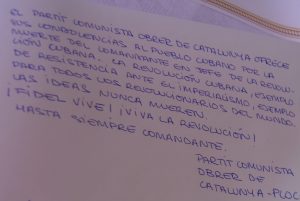 EL PARTIT COMUNISTA OBRER DE CATALUNYA OFRECE
SUS CONDOLENCIAS AL PUEBLO CUBANO POR LA
MUERTE DEL COMANDANTE EN JEFE DE LA REVOLU-
CIÓN CUBANA. LA REVOLUCIÓN CUBANA, EJEMPLO
DE RESISTENCIA ANTE EL IMPERIALISMO, EJEMPLO
PARA TODOS LOS REVOLUCIONARIOS DEL MUNDO.
LAS IDEAS NUNCA MUEREN.
¡FIDEL VIVE! ¡VIVA LA REVOLUCIÓN!
HASTA SIEMPRE COMANDANTE.
PARTIT COMUNISTA
OBRER DE
CATALUNYA-PCOC